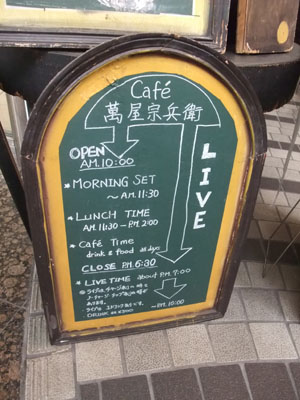 Café
萬屋宗兵衛
OPEN
A.M. 10:00
* MORNING SET
~ AM 11:30
* LUNCH TIME
A.M. 11:30 ~ P.M. 2:00
* Café Time
drink & food
CLOSE P.M. 6:30
* LIVE TIME about P.M. 7:00
~ P.M. 10:00
LIVE